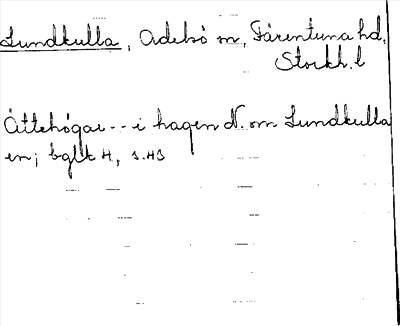 Lundkulla, Adelsö sn, Färentuna hd,
Stockh. l
Ättehögar -- i hagen N. om Lundkulla
en; bglk 4, s.43